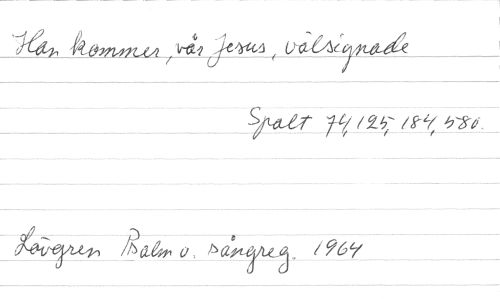 Han kommer, vår Jesus, välsignade
Spalt 74, 125, 184, 580.
Lövgren Psalm o. sångreg. 1964